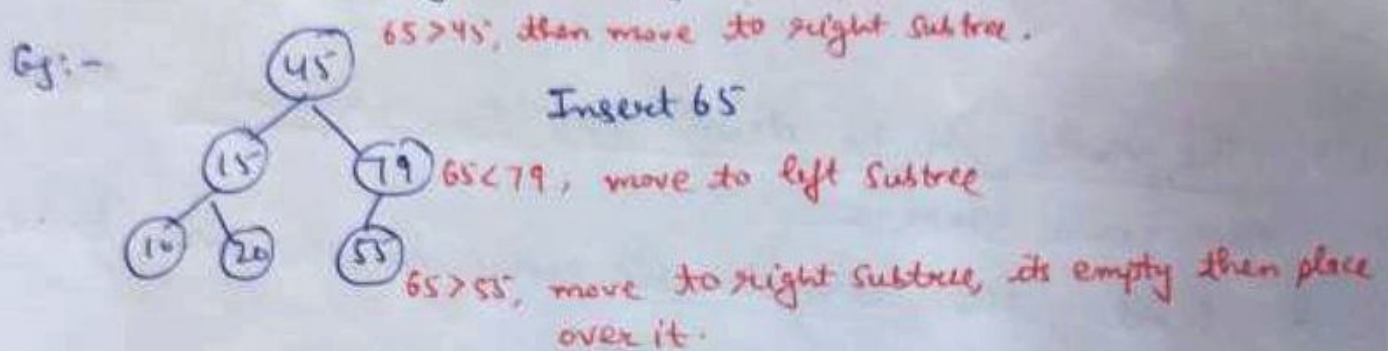 65>45, then move to right subtree.
Eg:-
45
Insert 65
15
79
65<79, move to left Subtree
10
20
55
65>55, move to right subtree, its empty then place
over it.